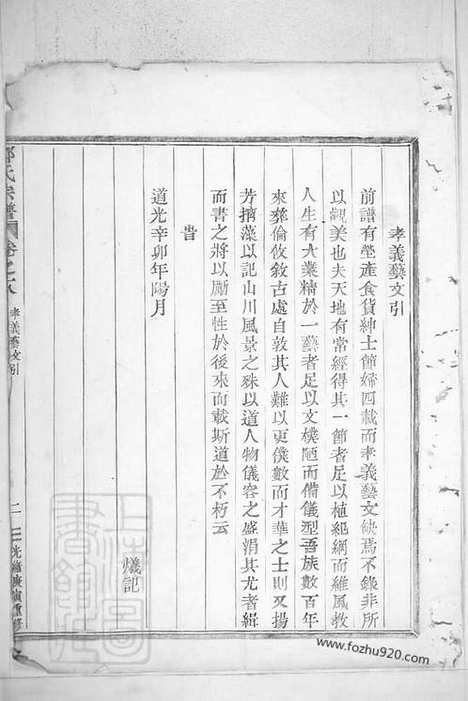 孝義藝文引
前譜有塋產食貨紳士節婦四載而孝義藝文缺焉不錄非所
以觀美也夫天地有常經得其一節者足以植紀綱而維風教
人生有大業精於一藝者足以文樸陋而備儀型吾族數百年
來彝倫攸敘古處自敦其人難以更僕數而才華之士則又揚
芳摛藻以記山川風景之殊以道人物儀容之盛涓其尤者緝
而書之將以勵至性於後來而載斯道於不朽云
旹
道光辛卯年陽月
爔記
氏宗譜
卷之八
孝義藝文引
二
光緒庚寅重修
www.fozhu920.com